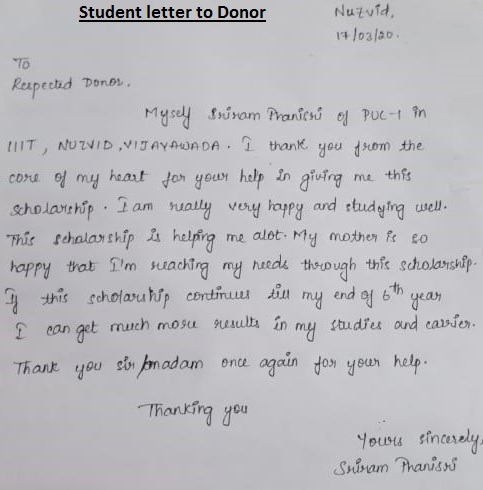 Student letter to Donor
Nuzvid,
17/03/20.
To
Respected Donor,
Myself Sriram Phanisri of PUC-1 in
IIIT, NUZVID, VIJAYAWADA. I thank you from the
core of my heart for your help in giving me this
scholarship. I am really very happy and studying well.
This scholarship is helping me alot. My mother is so
happy that I'm reaching my needs through this scholarship.
If this scholarship continues till my end of 6th year
I can get much more results in my studies and carrier.
Thank you sir/madam once again for your help.
Thanking you
Yours sincerely,
Sriram Phanisri